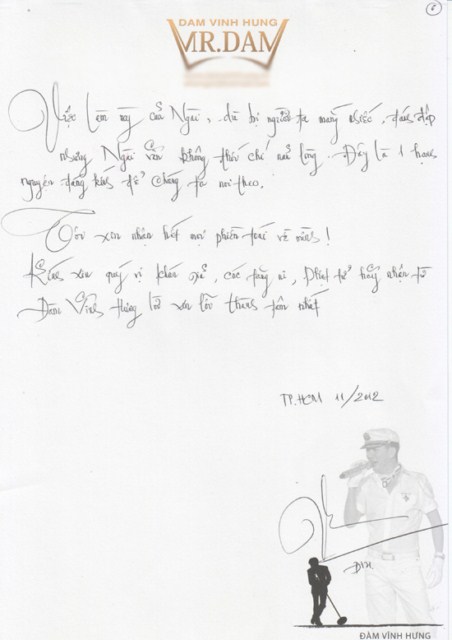 6
DAM VINH HUNG
MR.DAM
Việc làm này của Ngài, dù bị người ta mắng nhiếc, đánh đập
nhưng Ngài vẫn không thối chí nản lòng. Đây là 1 hạnh
nguyện đáng kính để chúng ta noi theo.
Tôi xin nhận hết mọi phiền toái về mình!
Kính xin quý vị khán giả, các tăng ni, Phật tử hãy nhận từ
Đàm Vĩnh Hưng lời xin lỗi thành tâm nhất
TP.HCM 11/2012
ĐVH
ĐÀM VĨNH HƯNG